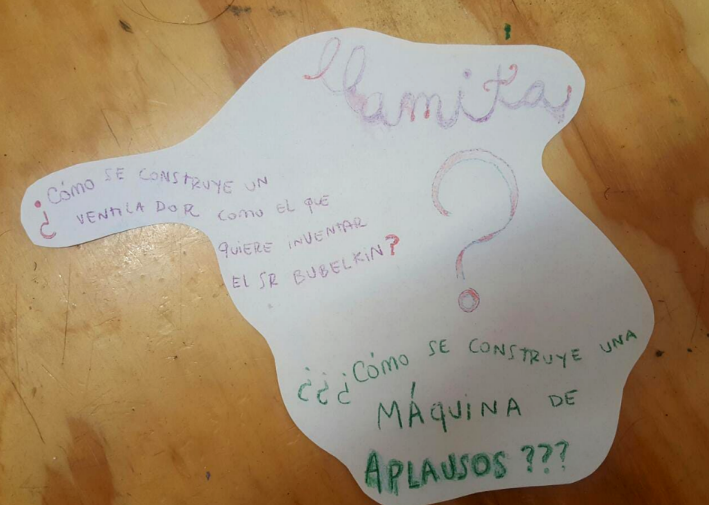 llamita
¿Cómo SE CONSTRUYE UN
VENTILADOR COMO EL QUE
QUIERE INVENTAR
EL SR BUBELKIN?
?
¿¿¿Cómo SE CONSTRUYE UNA
MÁQUINA DE
APLAUSOS ???